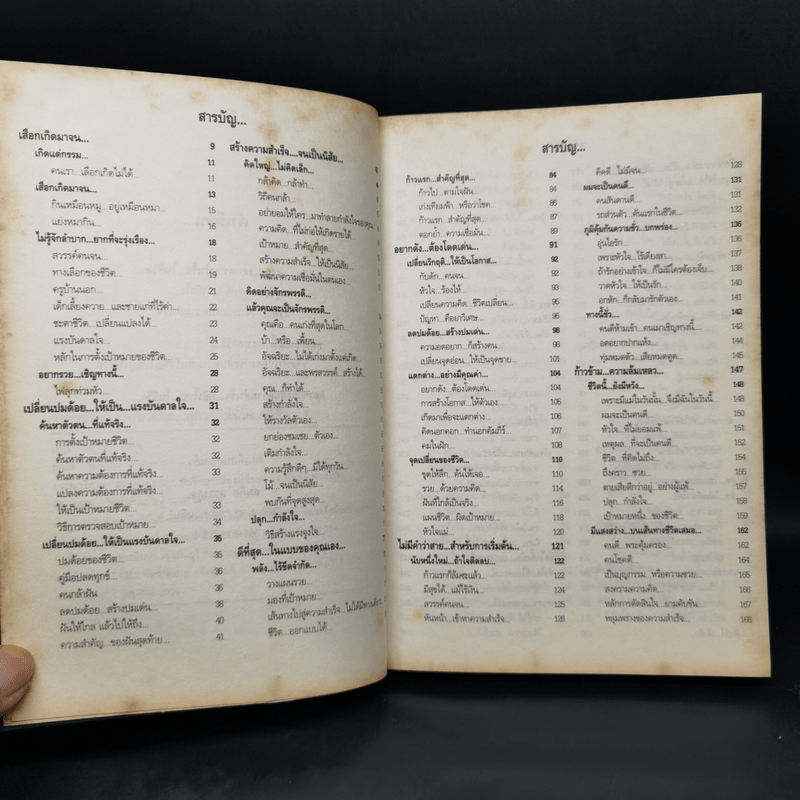 สารบัญ...
เสือกเกิดมาจน... 9
เกิดแต่กรรม... 11
คนเรา...เลือกเกิดไม่ได้ 11
เสือกเกิดมาจน... 13
กินเหมือนหมู...อยู่เหมือนหมา... 15
แย่งหมากิน... 17
ไม่รู้จักลำบาก...ยากที่จะรุ่งเรือง... 18
สวรรค์คนจน... 18
ทางเลือกของชีวิต... 20
ครูบ้านนอก... 21
เด็กเลี้ยงควาย...และชายแก่ที่ไร้ค่า... 22
ชะตาชีวิต...เปลี่ยนแปลงได้ 23
แรงบันดาลใจ... 24
หลักในการตั้งเป้าหมายของชีวิต... 25
อยากรวย...เชิญทางนี้... 28
ไฟลุกท่วมหัว... 28
เปลี่ยนปมด้อย...ให้เป็น...แรงบันดาลใจ... 31
ค้นหาตัวตน...ที่แท้จริง... 32
การตั้งเป้าหมายชีวิต... 32
ค้นหาตัวตนที่แท้จริง...
ค้นหาความต้องการที่แท้จริง...
แปลงความต้องการที่แท้จริง...
ให้เป็นเป้าหมายชีวิต... 33
วิธีการตรวจสอบเป้าหมาย... 34
เปลี่ยนปมด้อย...ให้เป็นแรงบันดาลใจ... 35
ปมด้อยของชีวิต... 35
คู่มือปลดทุกข์... 36
คนกล้าฝัน 38
ลดปมด้อย...สร้างปมเด่น... 38
ฝันให้ไกล แล้วไปให้ถึง... 40
ความสำคัญ...ของฝันสุดท้าย... 41
สร้างความสำเร็จ....จนเป็นนิสัย...
คิดใหญ่...ไม่คิดเล็ก...
กล้าคิด...กล้าทำ...
วิถีคนกล้า...
อย่ายอมให้ใคร...มาทำลายกำลังใจของคุณ...
ความคิด...ที่ไม่ก่อให้เกิดรายได้...
เป้าหมาย...สำคัญที่สุด...
สร้างความสำเร็จ...ให้เป็นนิสัย...
พัฒนาความเชื่อมั่นในตนเอง...
คิดอย่างจักรพรรดิ...
แล้วคุณจะเป็นจักรพรรดิ...
คุณคือ...คนเก่งที่สุดในโลก...
บ้า...หรือ...เพี้ยน...
อัจฉริยะ...ไม่ได้เก่งมาตั้งแต่เกิด...
อัจฉริยะ...และพรสวรรค์...สร้างได้...
คุณ...ก็ทำได้...
สร้างกำลังใจ...
ให้รางวัลตัวเอง...
ยกย่องชมเชย...ตัวเอง...
เติมกำลังใจ...
ความรู้สึกดีๆ...มีได้ทุกวัน...
โม้...จนเป็นนิสัย...
พบกันที่จุดสูงสุด...
ปลุก...กำลังใจ...
วิธีสร้างแรงจูงใจ...
ดีที่สุด...ในแบบของคุณเอง...
พลัง...ไร้ขีดจำกัด...
วางแผนรวย...
มองที่เป้าหมาย...
เส้นทางไปสู่ความสำเร็จ...ไม่ได้มีทางเดียว...
ชีวิต...ออกแบบได้...
สารบัญ...
ก้าวแรก...สำคัญที่สุด... 84
ก้าวไป...ตามใจฝัน... 84
เก่งเทียมฟ้า...หรือว่าโชค... 86
ก้าวแรก...สำคัญที่สุด... 87
ตอกย้ำ...ความเชื่อมั่น... 90
อยากดัง...ต้องโดดเด่น... 91
เปลี่ยนวิกฤติ...ให้เป็นโอกาส... 92
กับดัก...คนจน... 92
หัวใจ...ร้องไห้... 93
เปลี่ยนความคิด...ชีวิตเปลี่ยน... 95
ปัญหา...คือยาวิเศษ... 96
ลดปมด้อย...สร้างปมเด่น... 98
ความอดอยาก...ก็สร้างคน... 98
เปลี่ยนจุดอ่อน...ให้เป็นจุดขาย...
แตกต่าง...อย่างมีคุณค่า... 104
อยากดัง...ต้องโดดเด่น... 104
การสร้างโอกาส...ให้ตัวเอง... 105
เกิดมาเพื่อจะแตกต่าง...
คิดนอกคอก...ทำนอกคัมภีร์... 106
คมในฝัก... 108
จุดเปลี่ยนของชีวิต... 110
ขุดให้ลึก...ค้นให้เจอ... 110
รวย...ด้วยความคิด... 114
ฝันที่ใกล้เป็นจริง... 116
แผนชีวิต...ผิดเป้าหมาย... 118
หัวใจแม่... 119
ไม่มีคำว่าสาย...สำหรับการเริ่มต้น... 121
นับหนึ่งใหม่...ถ้าใจติดลบ... 122
ก้าวแรกก็ล้มซะแล้ว... 122
มีสุขได้...แม้ไร้เงิน... 124
สวรรค์คนจน... 125
หันหน้า...เข้าหาความสำเร็จ... 126
คิดดี...ไม่มีจน... 128
ผมจะเป็นคนดี... 131
คนสันดานดี... 131
รถส่วนตัว...คันแรกในชีวิต... 133
ภูมิคุ้มกันความชั่ว...บกพร่อง... 136
อุ่นไอรัก... 136
เพราะหัวใจ...ไร้เดียงสา... 138
ถ้ารักอย่างเข้าใจ...ก็ไม่มีใครต้องเจ็บ...
วาดหัวใจ...ให้เป็นรัก... 140
อกหัก...ก็กลับมารักตัวเอง... 141
ทางนี้ชั่ว... 142
คนดีห้ามเข้า...คนเมาเชิญทางนี้... 142
อดอยากปากแห้ง... 144
ทุ่มหมดตัว...เสียหมดตูด... 145
ก้าวข้าม...ความล้มเหลว... 147
ชีวิตนี้...ยังมีหวัง... 148
เพราะมีแมในวันนั้น...จึงมีฉันในวันนี้... 148
ผมจะเป็นคนดี... 150
หัวใจ...ที่ไม่ยอมแพ้... 151
เหตุผล...ที่จะเป็นคนดี... 152
ชีวิต...ที่คิดไม่ถึง... 154
ถึงคราว...ซวย... 155
ตายเสียดีกว่าอยู่...อย่างผู้แพ้...
ปลุก...กำลังใจ... 158
เป้าหมายหนึ่ง...ของชีวิต... 159
มีแสงสว่าง...บนเส้นทางชีวิตเสมอ... 162
คนดี...พระคุ้มครอง... 162
คนโชคดี... 163
เป็นบุญกรรม...หรือความซวย... 164
สงครามความคิด... 164
หลักการตัดสินใจ...ยามคับขัน... 166
หลุมพรางของความสำเร็จ... 168